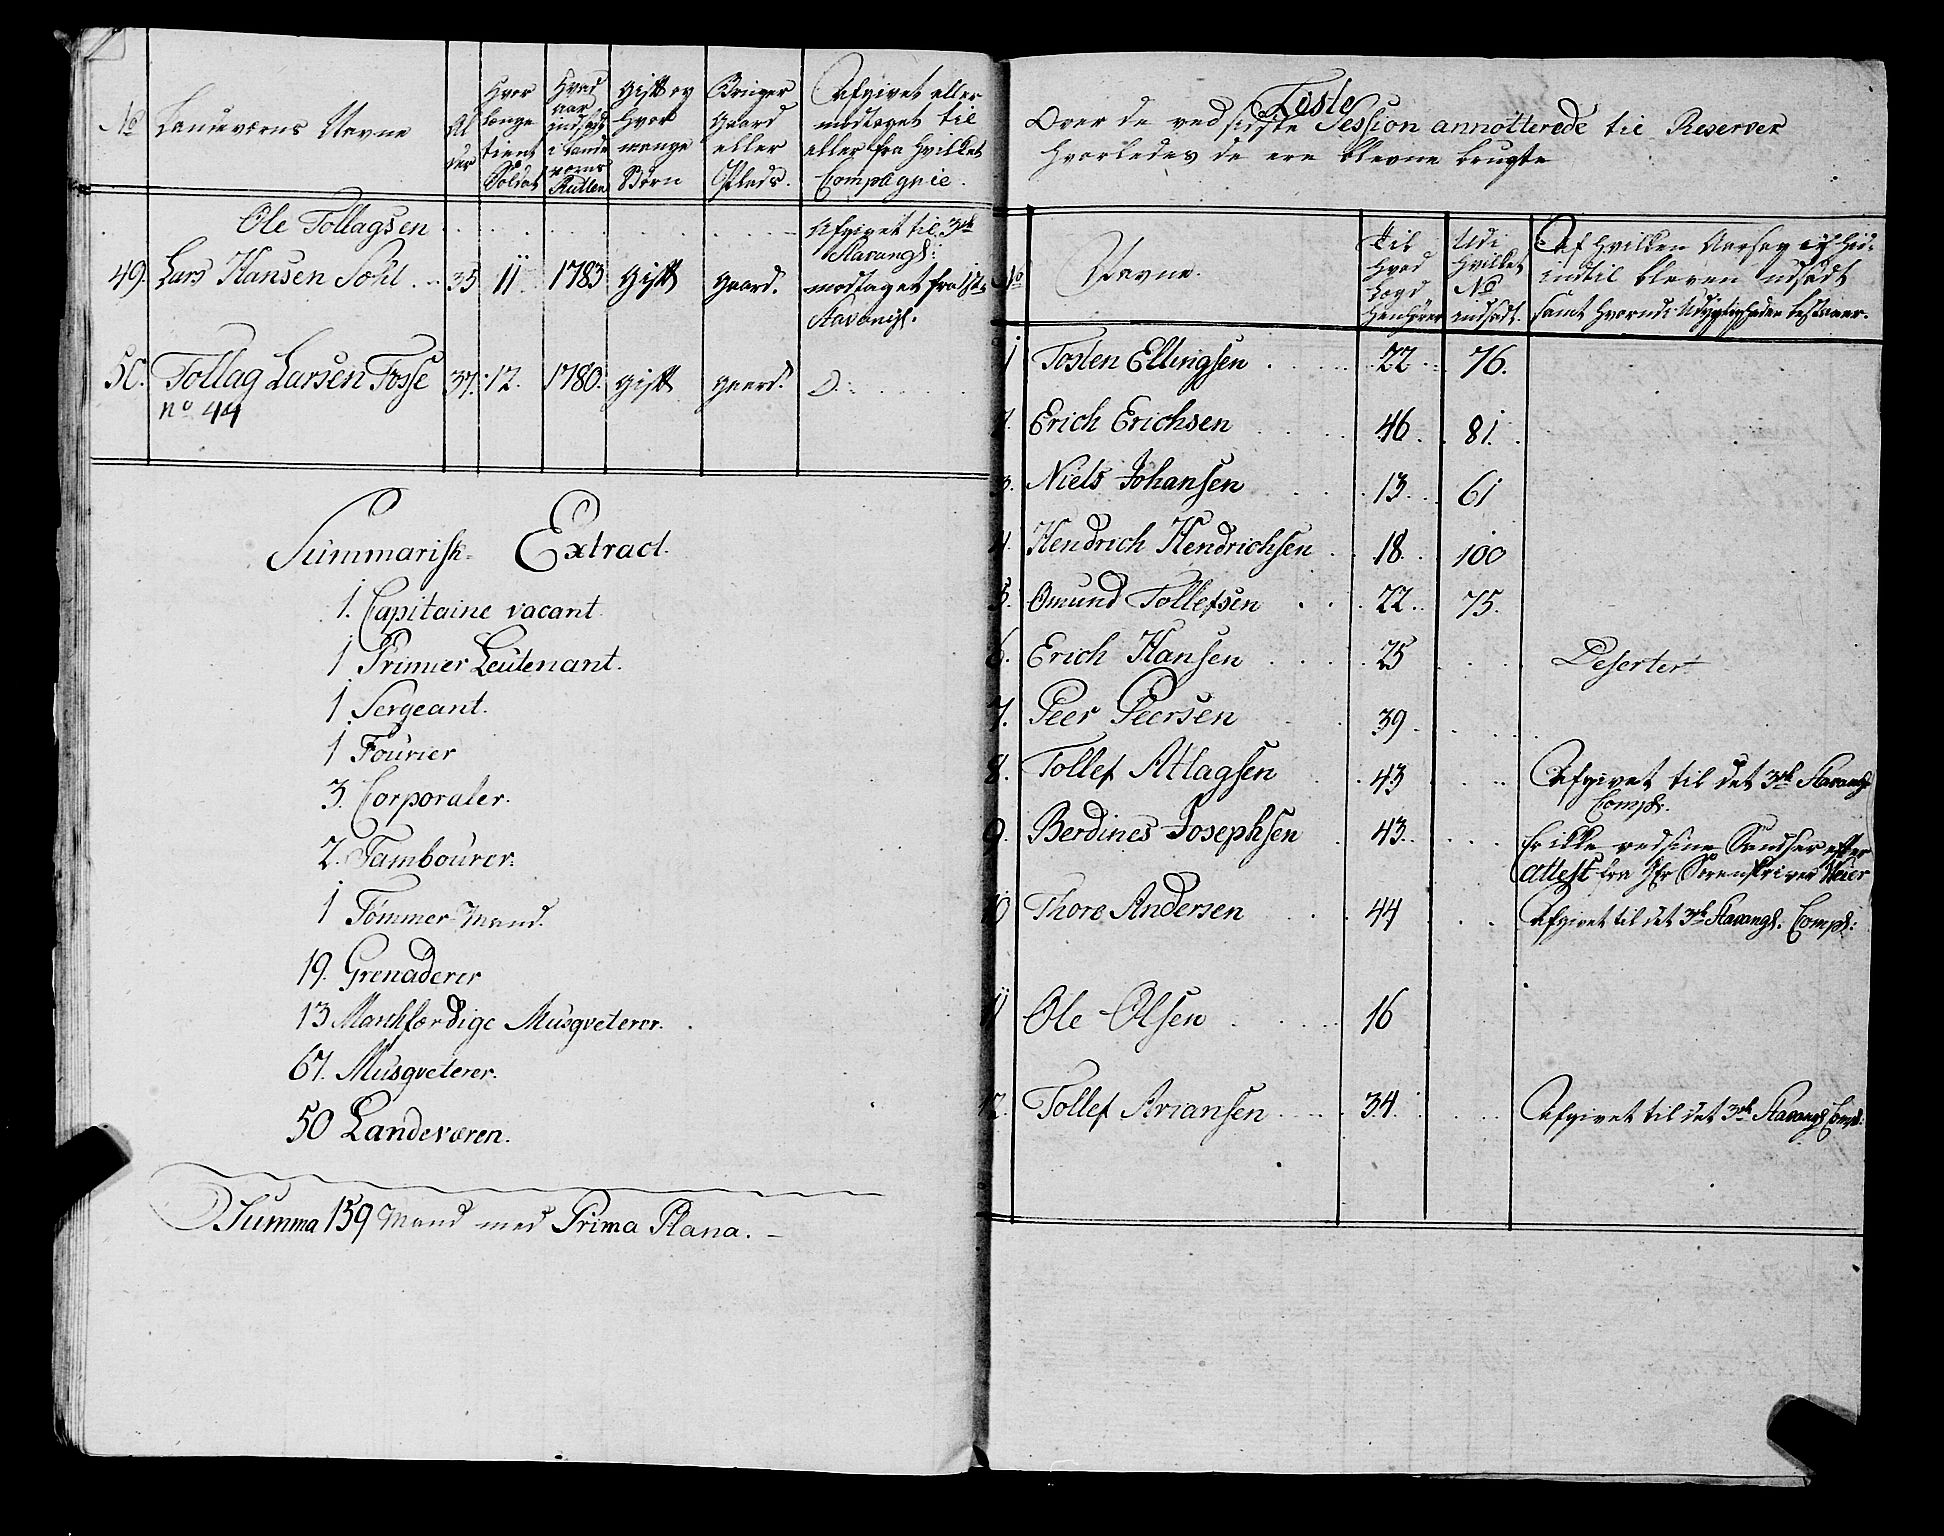 No Landeværns Navne Al der Hvor længe tient Soldat Hvad aar indsadt i Lande værns Rullen gift og hvor mange Børn Bruger gaard eller Plads. Afgivet eller modtaget til eller fra hvilket Compagnie.
Ole Tollagsen Afgivet til 3de Stavangs:
49. Lars Hansen Sohl 35 11 1783 gift gaard. modtaget fra 1ste Stavangs.
50. Tollag Larsen Fosse 37. 12. 1780. gift gaard. D:
no 44
Summarisk Extract.
1. Capitaine vacant.
1 Primier Leutenant.
1 Sergeant.
1 Fourier
3. Corporaler.
2. Tambourer.
1 Tømmer-Mand.
19. Grenaderer
13 Marchfærdige Musqveterer.
67. Musqveterer.
50 Landeværen.
Summa 159 Mand med Prima Plana.
Liste
Over de ved sidste Session annotterede til Reserver
hvorledes de ere blevne brugte
No Navne. Til hvad Lægd henhører Udi hvilket No indsadt. Af hvilken Aarsag ey hid-
indtil bleven indsadt
samt hvorudi Udygtigheden bestaaer.
1 Tosten Ellingsen 22 76.
2. Erich Erichsen 46 81.
3. Niels Johansen 13 61
4. Hendrich Hendrichsen 18 100
5. Omund Tollefsen 22 75.
6. Erich Hansen 25 Desertert
7. Peer Peersen 39
8. Tollef Atlagsen 43 Afgivet til det 3de Stavangs
Comps.
9. Berdines Josephsen 43 Er ikke ved sine Sandser efter
attest fra Hr Sorenskriver Meier
10 Thore Andersen 44 Afgivet til det 3de Stavangs. Comps:
11 Ole Olsen 16
12. Tollef Ariansen 34 Afgivet til det 3de Stavangs Comps: